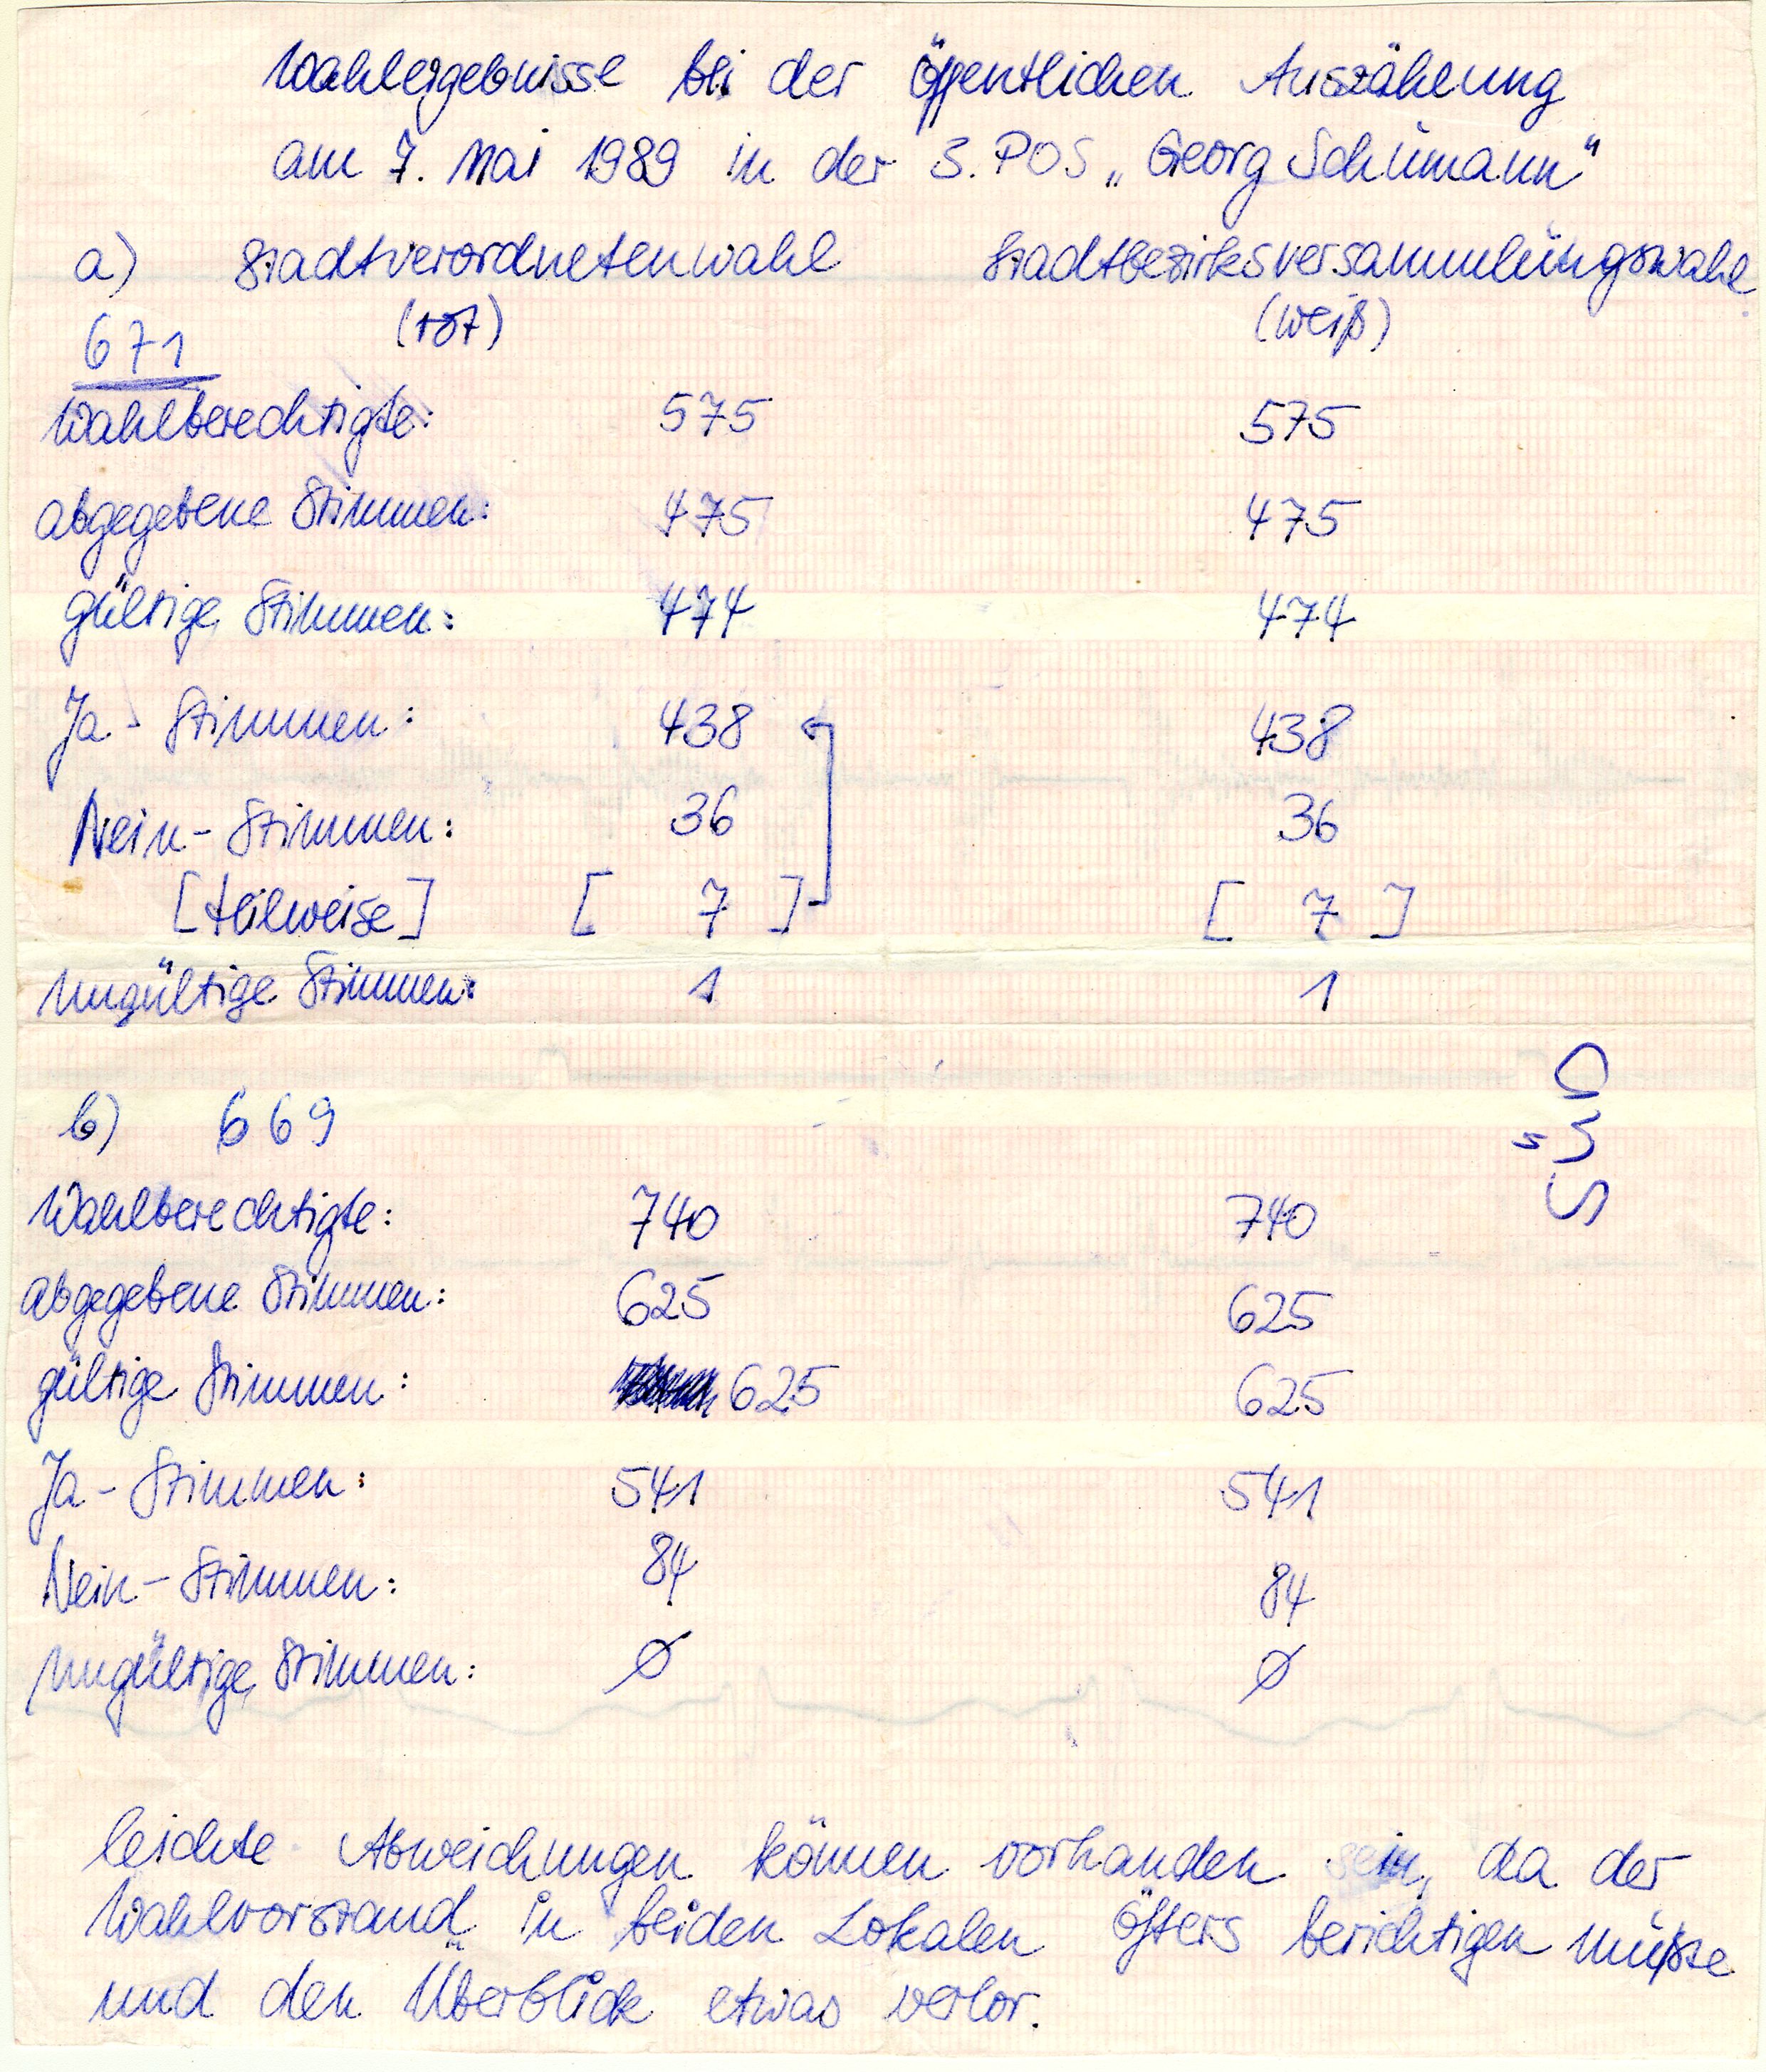 Wahlergebnisse bei der öffentlichen Auszählung
am 7. Mai 1989 in der 3. POS „Georg Schumann“
a) Stadtverordnetenwahl Stadtbezirksversammlungswahl
671 (rot) (weiß)
Wahlberechtigte: 575 575
abgegebene Stimmen: 475 475
gültige Stimmen: 474 474
Ja-Stimmen: 438 438
Nein-Stimmen: 36 36
[teilweise] [ 7 ] [ 7 ]
ungültige Stimmen: 1 1
b) 669
Wahlberechtigte: 740 740
abgegebene Stimmen: 625 625
gültige Stimmen: 625 625
Ja-Stimmen: 541 541
Nein-Stimmen: 84 84
ungültige Stimmen: Ø Ø
leichte Abweichungen können vorhanden sein, da der
Wahlvorstand in beiden Lokalen öfters berichtigen mußte
und den Überblick etwas verlor.